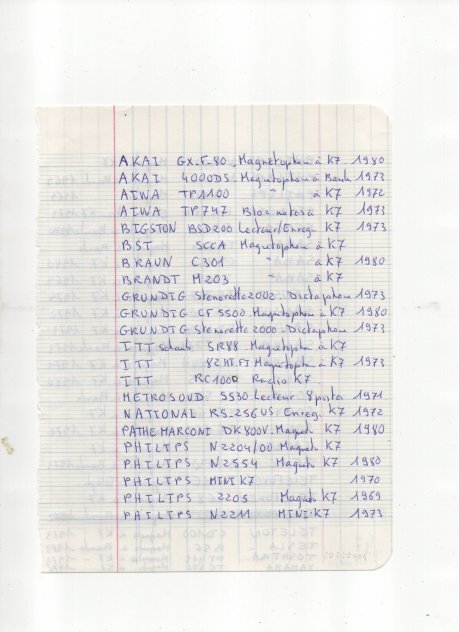 AKAI GX.F.80. Magnétophon à K7 1980
AKAI 4000DS. Magnétophon à Bande 1973
AIWA TP1100 " à K7 1972
AIWA TP747 Bloc notes à K7 1973
BIGSTON BSD200 Lecteur/Enreg. K7 1973
BST SCCA Magnétophon à K7
BRAUN C301 " à K7 1980
BRANDT M203 " à K7
GRUNDIG Stenorette 2002. Dictaphone 1973
GRUNDIG CF5500. Magnétophon à K7 1980
GRUNDIG Stenorette 2000. Dictaphone 1973
ITT Schaub SR88. Magnétophon à K7
ITT 82 HI.FI Magnétophon à K7 1973
ITT RC1000 Radio K7
METROSOUD 5530. Lecteur 8 pistes 1971
NATIONAL RS.256US. Enreg. K7 1972
PATHE MARCONI DK800V. Magnéto K7 1980
PHILIPS N2204/00 Magnéto K7
PHILIPS N2554 Magnéto K7 1980
PHILIPS MINI K7 1970
PHILIPS 2205 Magnéto K7 1969
PHILIPS N2211 MINI-K7 1973